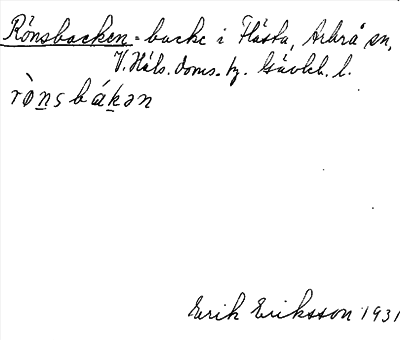 Rönsbacken - backe i Flästa, Arbrå sn,
V. Häls. doms. tg. Gävleb. l.
rò̀n̲s bák̲ən
Erik Eriksson 1931